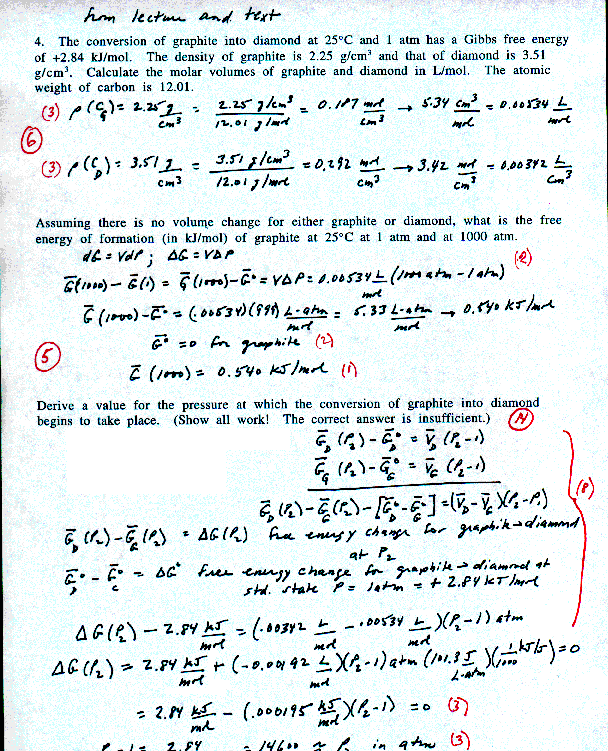 from lecture and text
4. The conversion of graphite into diamond at 25°C and 1 atm has a Gibbs free energy
of +2.84 kJ/mol. The density of graphite is 2.25 g/cm³ and that of diamond is 3.51
g/cm³. Calculate the molar volumes of graphite and diamond in L/mol. The atomic
weight of carbon is 12.01.
(3) ρ(C_G) = 2.25 g/cm³ = 2.25 g/cm³ / 12.01 g/mol = 0.187 mol/cm³ → 5.34 cm³/mol = 0.00534 L/mol
(6)
(3) ρ(C_D) = 3.51 g/cm³ = 3.51 g/cm³ / 12.01 g/mol = 0.292 mol/cm³ → 3.42 mol/cm³ = 0.00342 L/cm³
Assuming there is no volume change for either graphite or diamond, what is the free
energy of formation (in kJ/mol) of graphite at 25°C at 1 atm and at 1000 atm.
dG = VdP ; ΔG = VΔP
G̅(1000) - G̅(1) = G̅(1000) - G̅° = VΔP = 0.00534 L/mol (1000 atm - 1 atm) (2)
G̅(1000) - G̅° = (.00534)(999) L-atm/mol = 5.33 L-atm/mol → 0.540 kJ/mol
G̅° = 0 for graphite (2)
(5)
G̅(1000) = 0.540 kJ/mol (1)
Derive a value for the pressure at which the conversion of graphite into diamond
begins to take place. (Show all work! The correct answer is insufficient.) (14)
G̅_D(P₂) - G̅_D° = V̅_D(P₂-1)
G̅_G(P₂) - G̅_G° = V̅_G(P₂-1)
G̅_D(P₂) - G̅_G(P₂) - [G̅_D° - G̅_G°] = (V̅_D - V̅_G)(P₂-P₁) (8)
G̅_D(P₂) - G̅_G(P₂) = ΔG(P₂) free energy change for graphite → diamond
at P₂
G̅_D° - G̅_G° = ΔG° free energy change for graphite → diamond at
std. state P = 1 atm = +2.84 kJ/mol
ΔG(P₂) - 2.84 kJ/mol = (.00342 L/mol - .00534 L/mol)(P₂-1) atm
ΔG(P₂) = 2.84 kJ/mol + (-0.00192 L/mol)(P₂-1) atm (101.3 J/L-atm)(1/1000 kJ/J) = 0
= 2.84 kJ/mol - (.000195 kJ/mol)(P₂-1) = 0 (3)
P₂-1 = 2.84 = 14600 ≈ P₂ in atm (3)